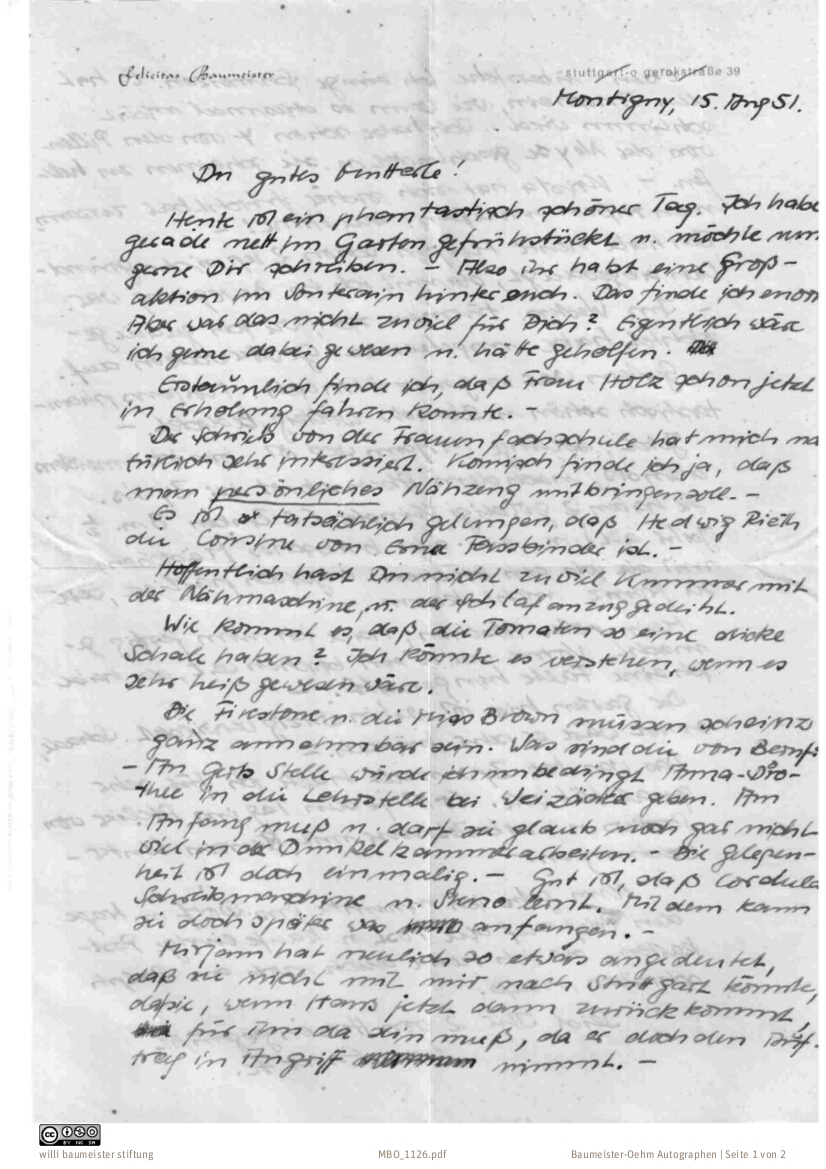 Felicitas Baumeister
stuttgart-o gerokstraße 39
Montigny, 15. Aug 51.
Du gutes Mutterle!
Heute ist ein phantastisch schöner Tag. Ich habe
gerade nett im Garten gefrühstückt u. möchte nun
gerne Dir schreiben. – Also ihr habt eine Groß-
aktion im Souterain hinter euch. Das finde ich enor
Aber war das nicht zuviel für Dich? Eigentlich wäre
ich gerne dabei gewesen u. hätte geholfen.
Erstaunlich finde ich, daß Frau Holz schon jetzt
in Erholung fahren konnte. –
Der Schrieb von der Frauenfachschule hat mich na
türlich sehr interessiert. Komisch finde ich ja, daß
man persönliches Nähzeug mitbringen soll. –
Es ist tatsächlich gelungen, daß Hedwig Rieth
die Cousine von Erna Fassbinder ist. –
Hoffentlich hast Du nicht zu viel Kummer mit
der Nähmaschine, u. der Schlafanzug gedeiht.
Wie kommt es, daß die Tomaten so eine dicke
Schale haben? Ich könnte es verstehen, wenn es
sehr heiß gewesen wäre.
Die Firestone u. die Miss Brown müssen scheints
ganz annehmbar sein. Was sind die von
– An Gerts Stelle würde ich unbedingt Anna-Do-
thee in die Lehrstelle bei Weizäcker geben. Am
Anfang muß u. darf sie glaub noch gar nicht
viel in der Dunkelkammer arbeiten. – Die gelegen-
heit ist doch einmalig. – Gut ist, daß Cordula
Schreibmaschine u. Steno lernt. Mit dem kann
sie doch später was anfangen. –
Mirjam hat neulich so etwas angedeutet,
daß sie nicht mit mir nach Stuttgart könnte,
da sie, wenn Hans jetzt dann zurückkommt,
für ihn da sein muß, da er doch den Auf-
trag in Angriff nimmt. –
CC BY NC SA
willi baumeister stiftung
MBO_1126.pdf
Baumeister-Oehm Autographen | Seite 1 von 2